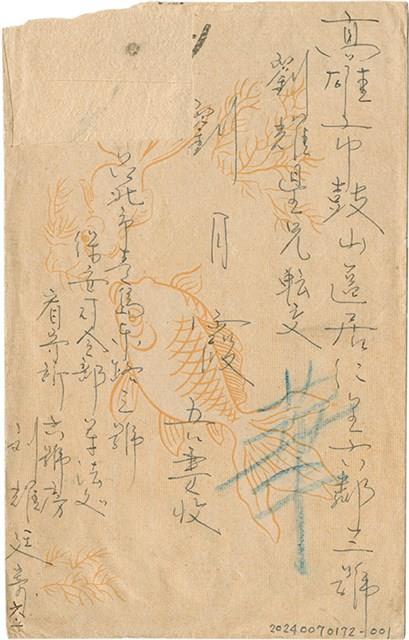 高雄市鼓山區居仁里六鄰三號
劉耀星兄転交
劉月霞 吾妻收
台北市青島東路三號
保安司令部軍法処
看守所 六號房
劉耀廷寄
20240070172-001